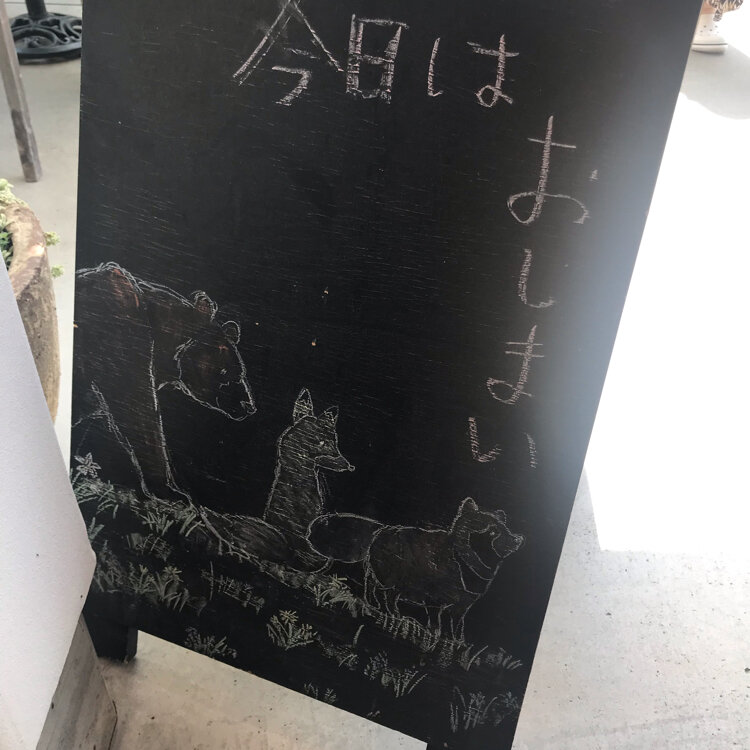 今日は
おしまい